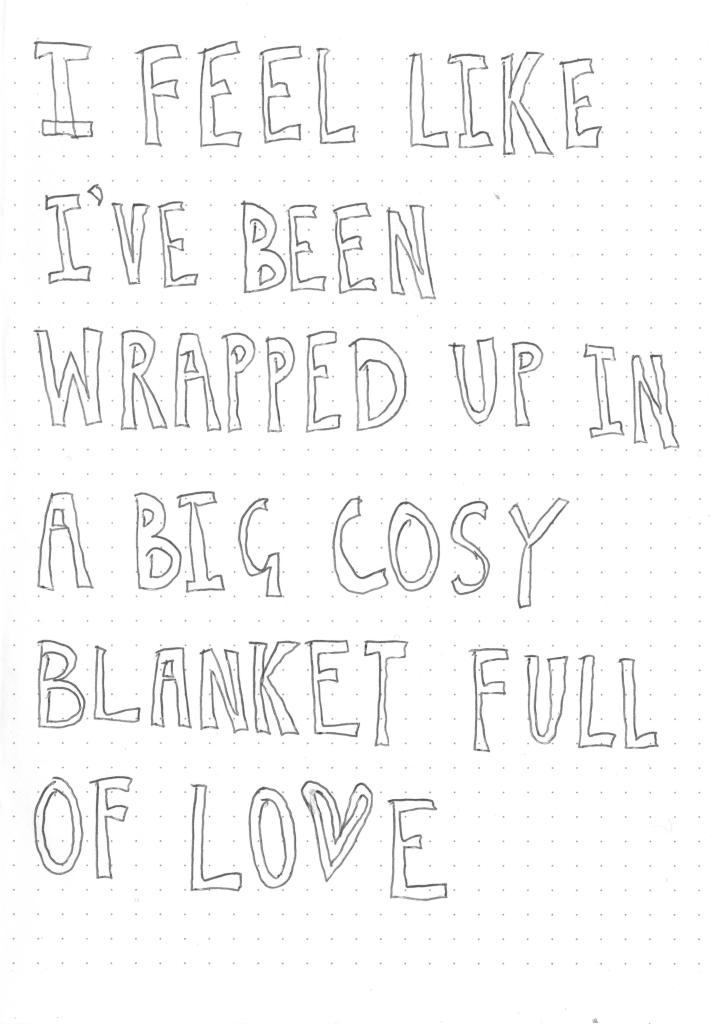 I FEEL LIKE
I'VE BEEN
WRAPPED UP IN
A BIG COSY
BLANKET FULL
OF LOVE